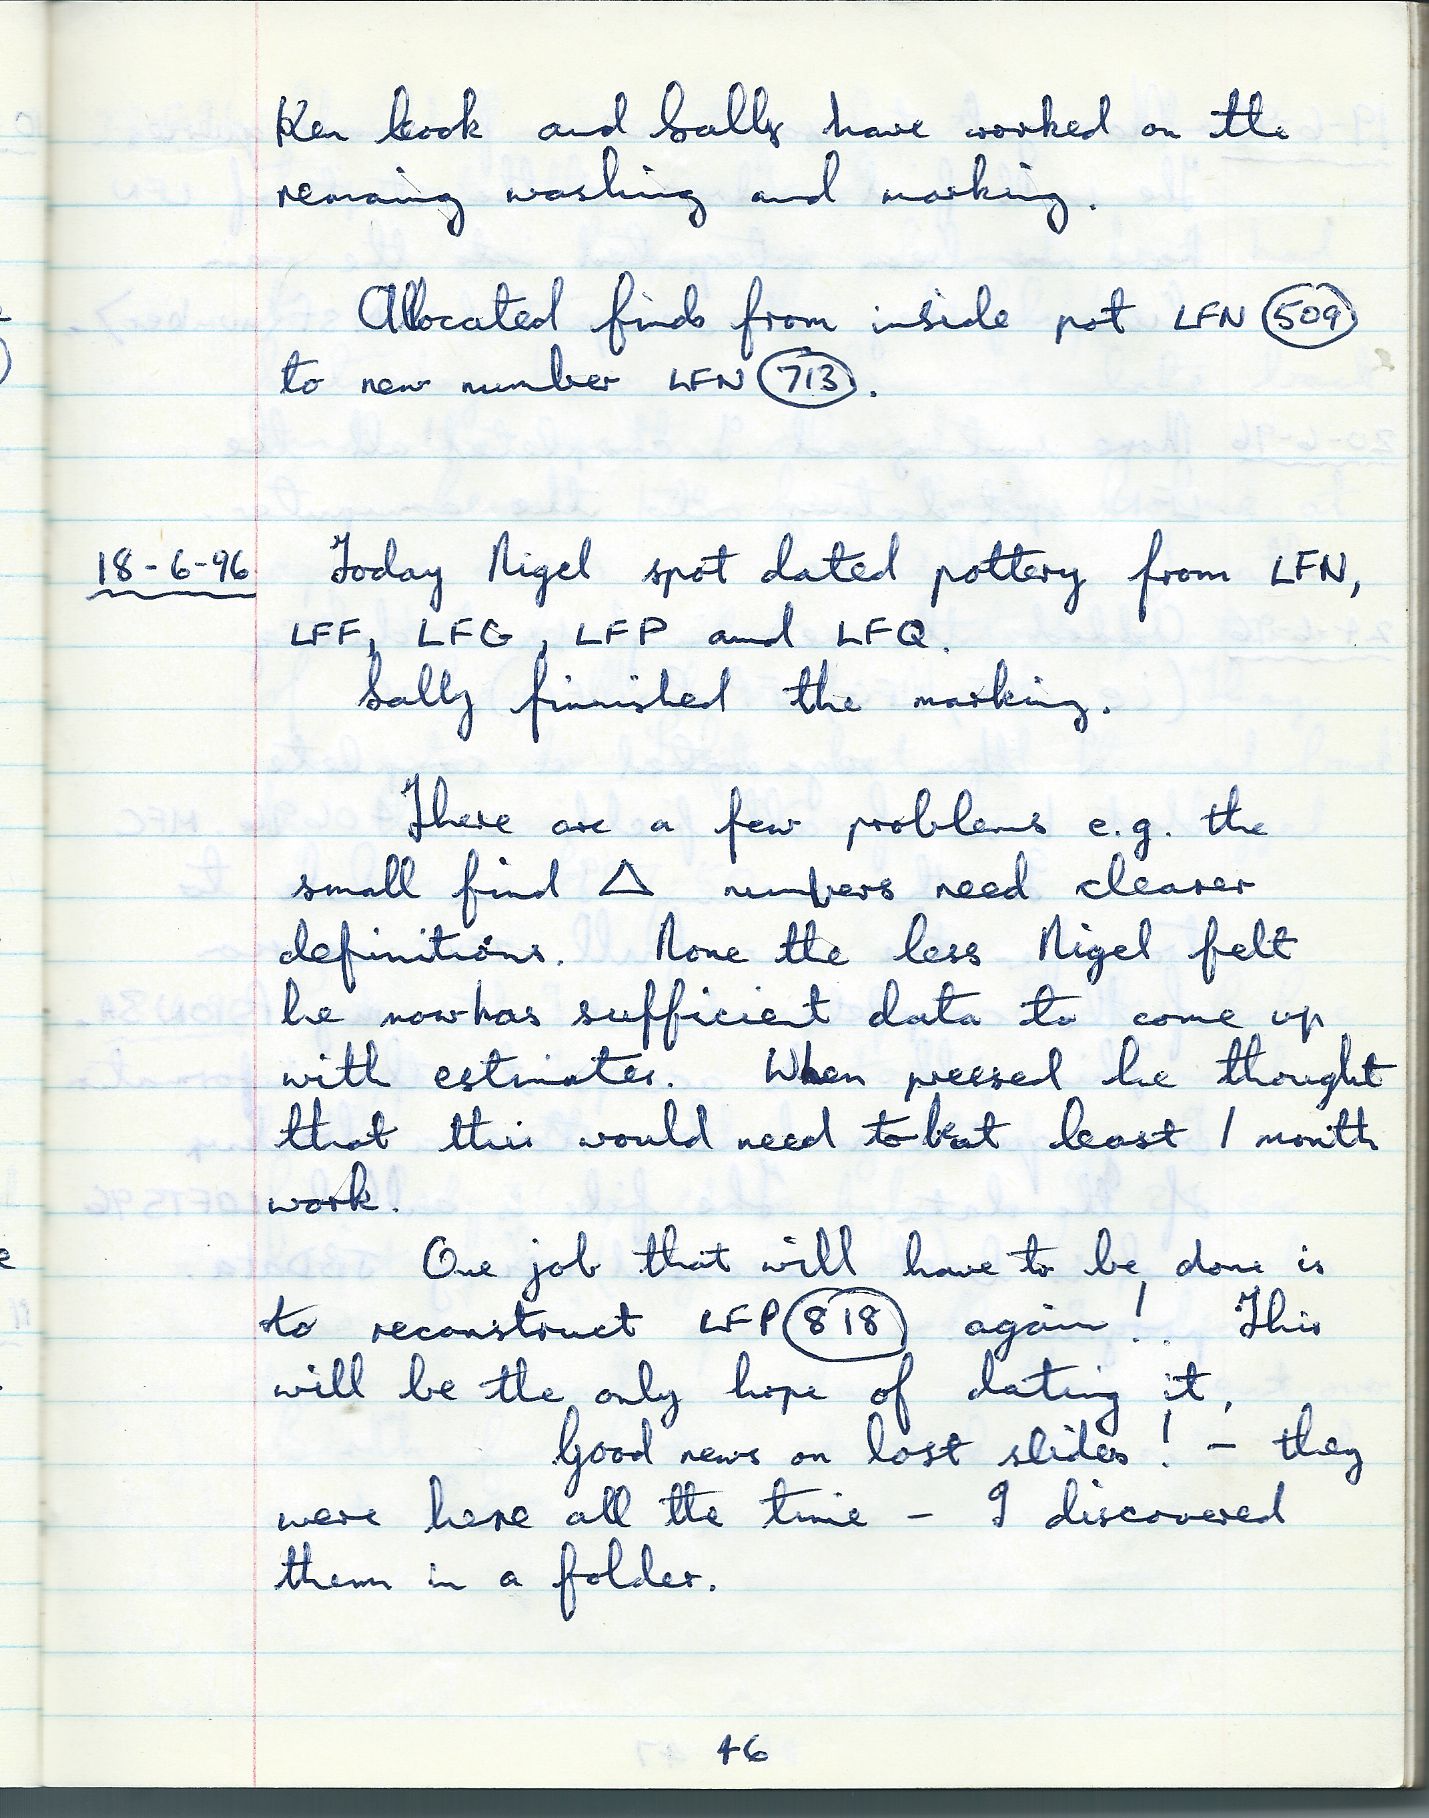 Ken Cook and Sally have worked on the
remaing washing and marking.
Allocated finds from inside pot LFN 509
to new number LFN 713.
18-6-96 Today Nigel spot dated pottery from LFN,
LFF, LFG, LFP and LFQ.
Sally finnished the marking.
There are a few problems e.g. the
small find △ numbers need clearer
definitions. None the less Nigel felt
he now has sufficient data to come up
with estimates. When pressed he thought
that this would need to be at least 1 month
work.
One job that will have to be done is
to reconstruct LFP 818 again!. This
will be the only hope of dating it.
Good news on lost slides! - they
were here all the time - I discovered
them in a folder.
46